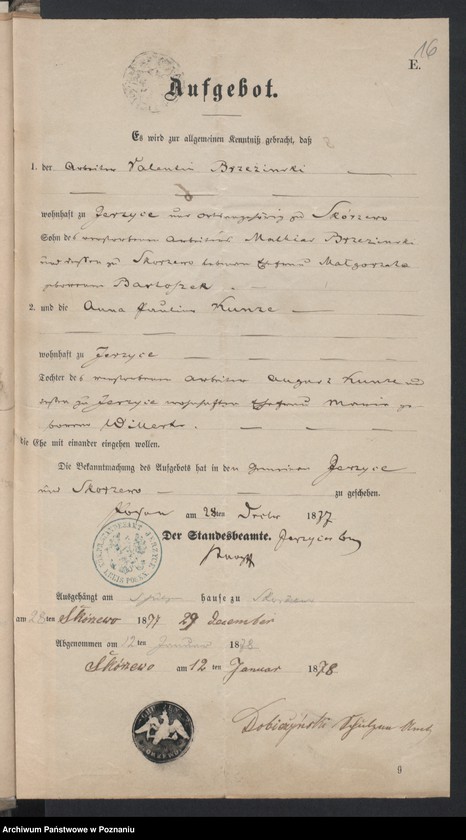 16
E.
Aufgebot.
Es wird zur allgemeinen Kenntniß gebracht, daß
1. der Arbeiter Valentin Brzezinski
wohnhaft zu Jerzyce und ortsangehörig zu Skórzewo
Sohn des verstorbenen Arbeiters Mathias Brzezinski
und dessen zu Skorzewo Ehefrau Małgorzata
geborenen Bartoszek.
2. und die Anna Paulina Kunze
wohnhaft zu Jerzyce
Tochter des verstorbenen Arbeiter August Kunze und
dessen zu Jerzyce wohnhaften Ehefrau Maria ge-
borenen Willert.
die Ehe mit einander eingehen wollen.
Die Bekanntmachung des Aufgebots hat in den Gemeinden Jerzyce
und Skorzewo zu geschehen.
Posen am 28ten Decbr 1877
Der Standesbeamte.
KREIS POSEN
Ausgehängt am hause zu Skorzewo
am 28ten Skórzewo 1877 29 december
Abgenommen am 12ten Januar 1878
Skórzewo am 12 Januar 1878
Dobiczyński Schulzen Amt.
9
Archiwum Państwowe w Poznaniu